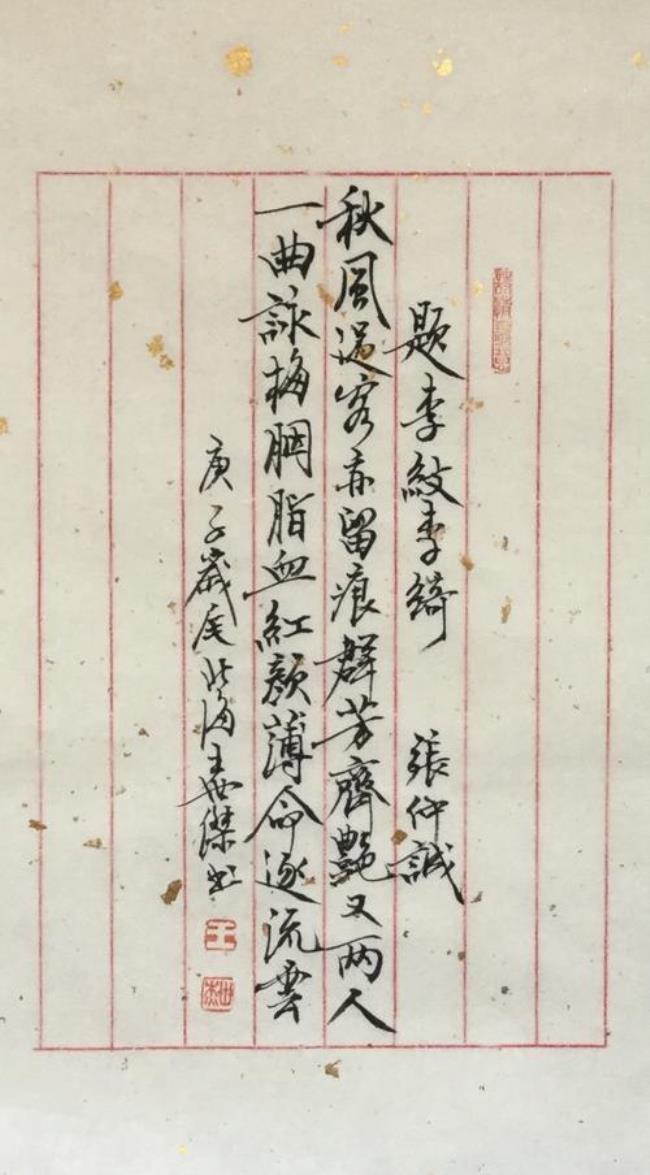 題李紋李綺 張仲誠
秋風過客亦留痕群芳齊艷又两人
一曲詠梅胭脂血紅顏薄命逐流雲
庚子歲尾北海王世傑书
王
世杰